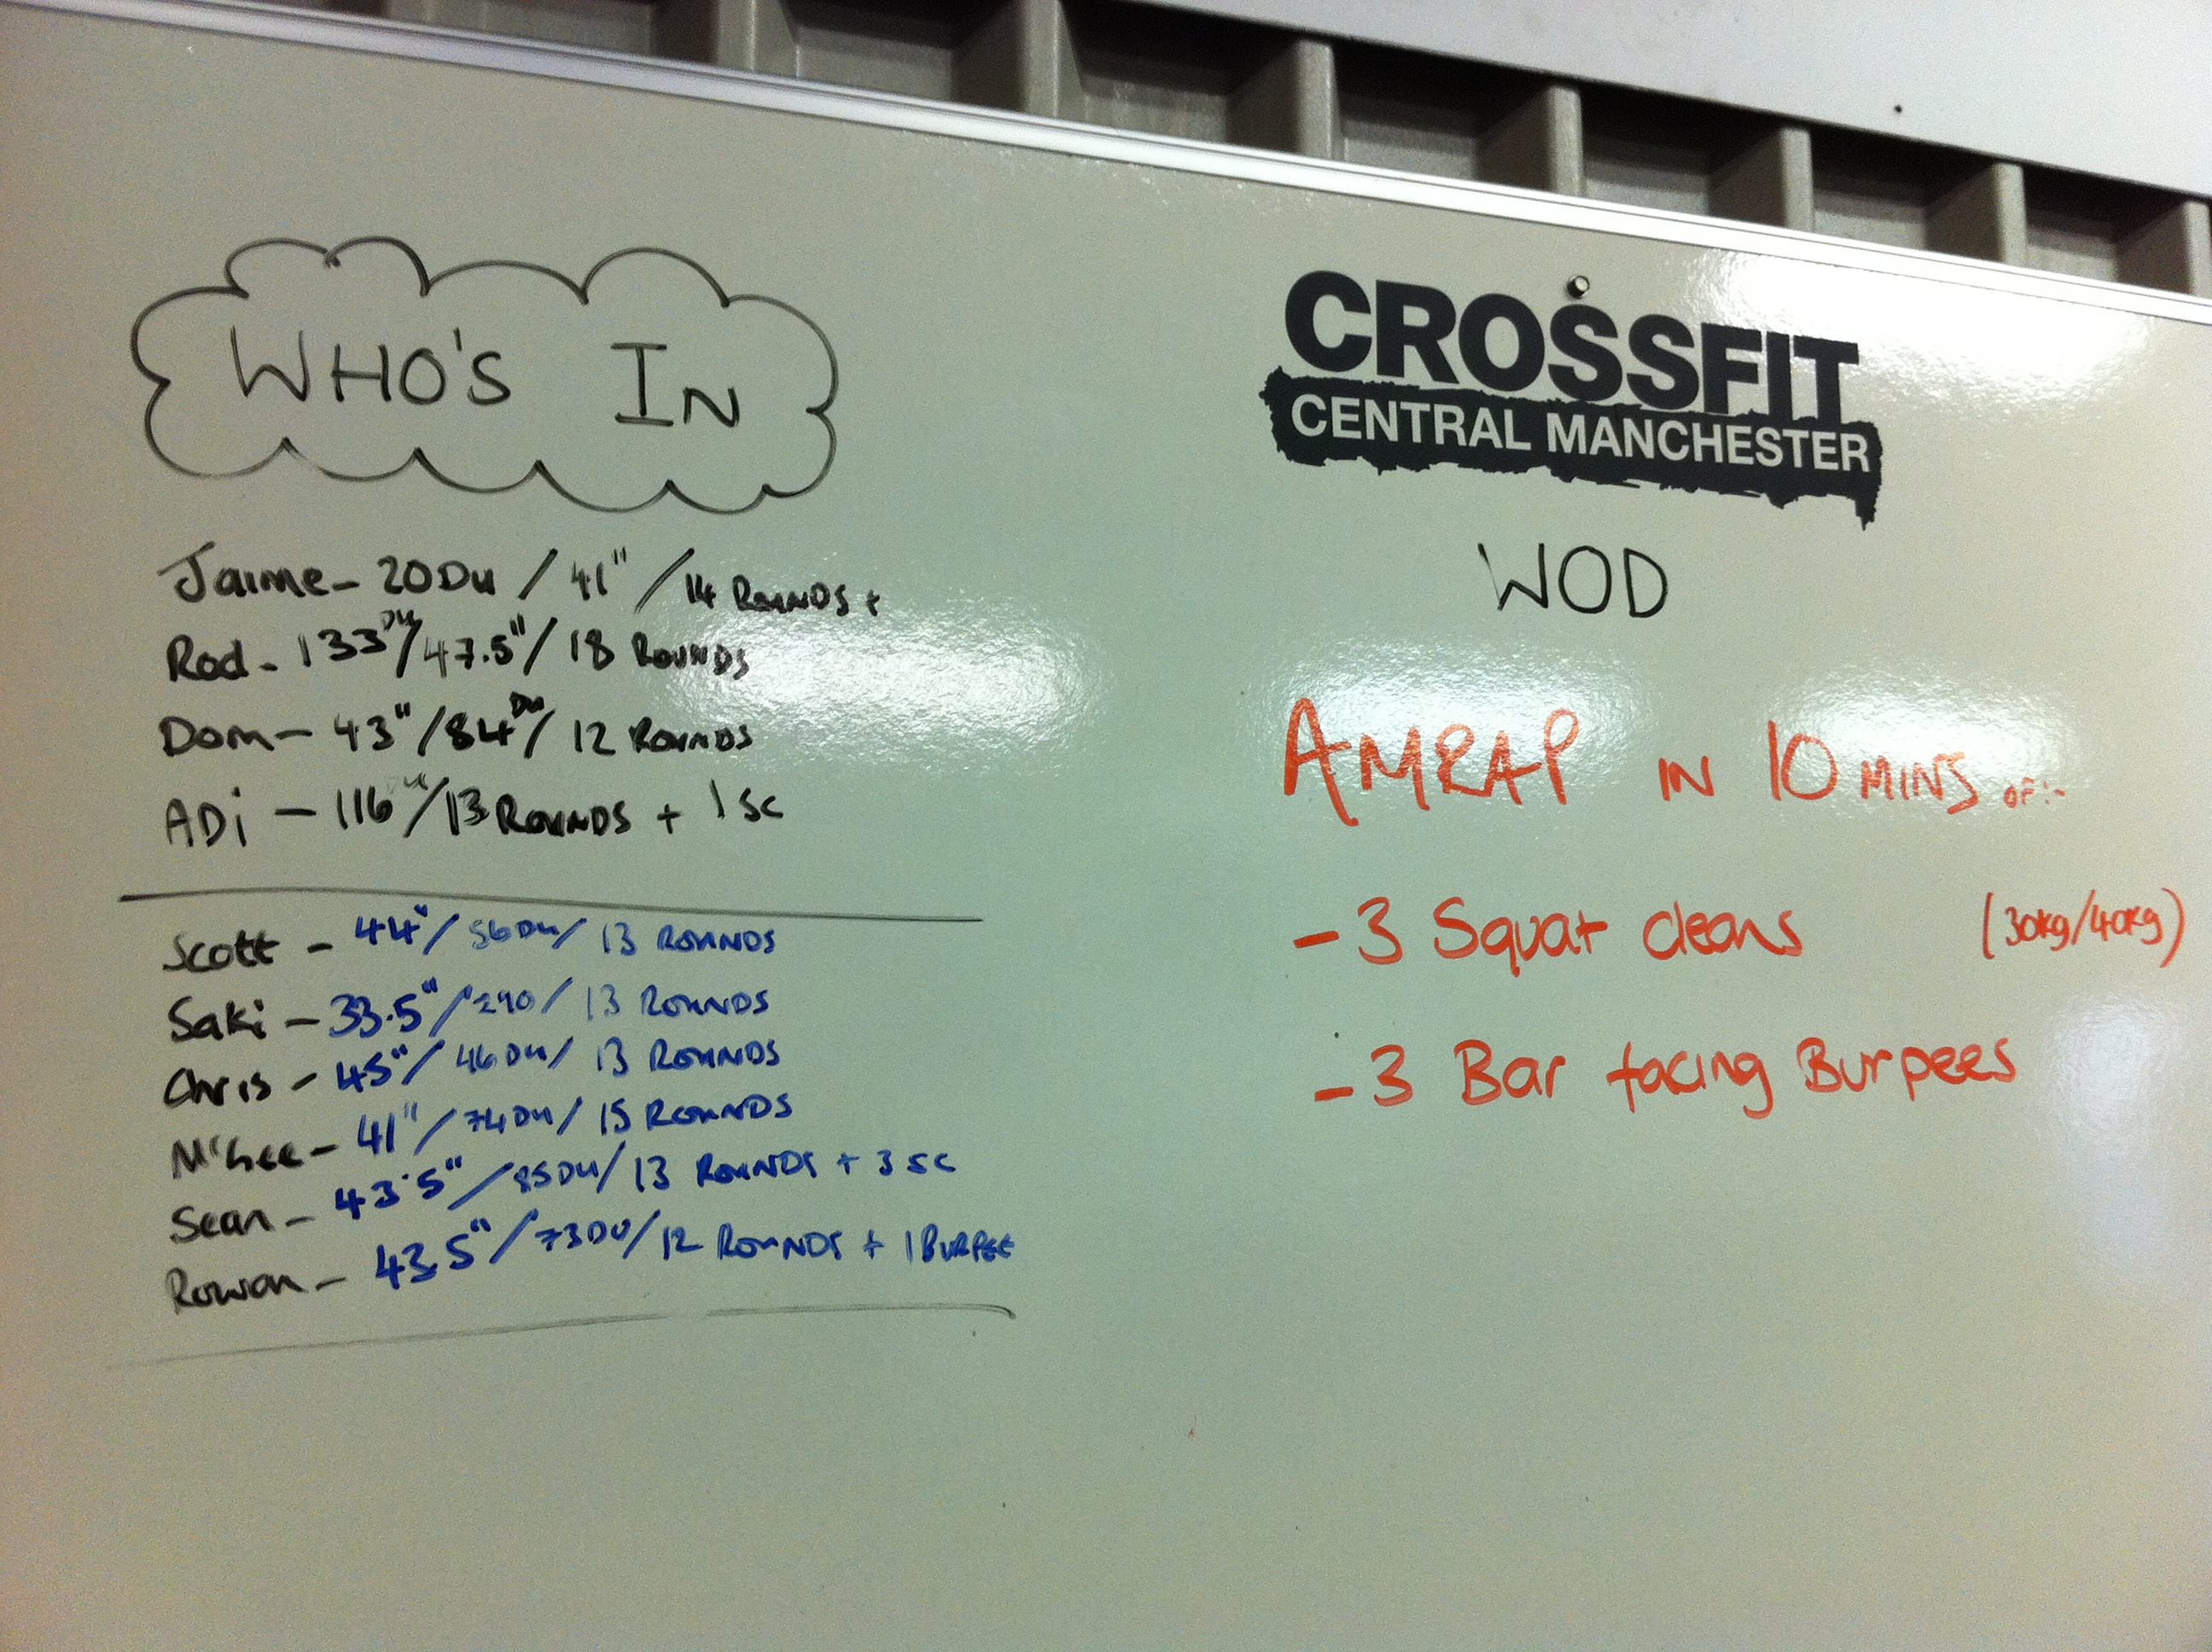 WHO'S IN
Jaime - 20DU / 41" / 14 ROUNDS +
Rod - 133DU / 47.5" / 18 ROUNDS
Dom - 43" / 84DU / 12 ROUNDS
ADi - 116DU / 13 ROUNDS + 1 SC
Scott - 44" / 56DU / 13 ROUNDS
Saki - 33.5" / 290 / 13 ROUNDS
Chris - 45" / 46DU / 13 ROUNDS
M'Gee - 41" / 74DU / 15 ROUNDS
Sean - 43.5" / 85DU / 13 ROUNDS + 3 SC
Rowan - 43.5" / 73DU / 12 ROUNDS + 1 BURPEE
CROSSFIT
CENTRAL MANCHESTER
WOD
AMRAP IN 10 MINS OF:-
- 3 Squat cleans (30kg/40kg)
- 3 Bar facing Burpees